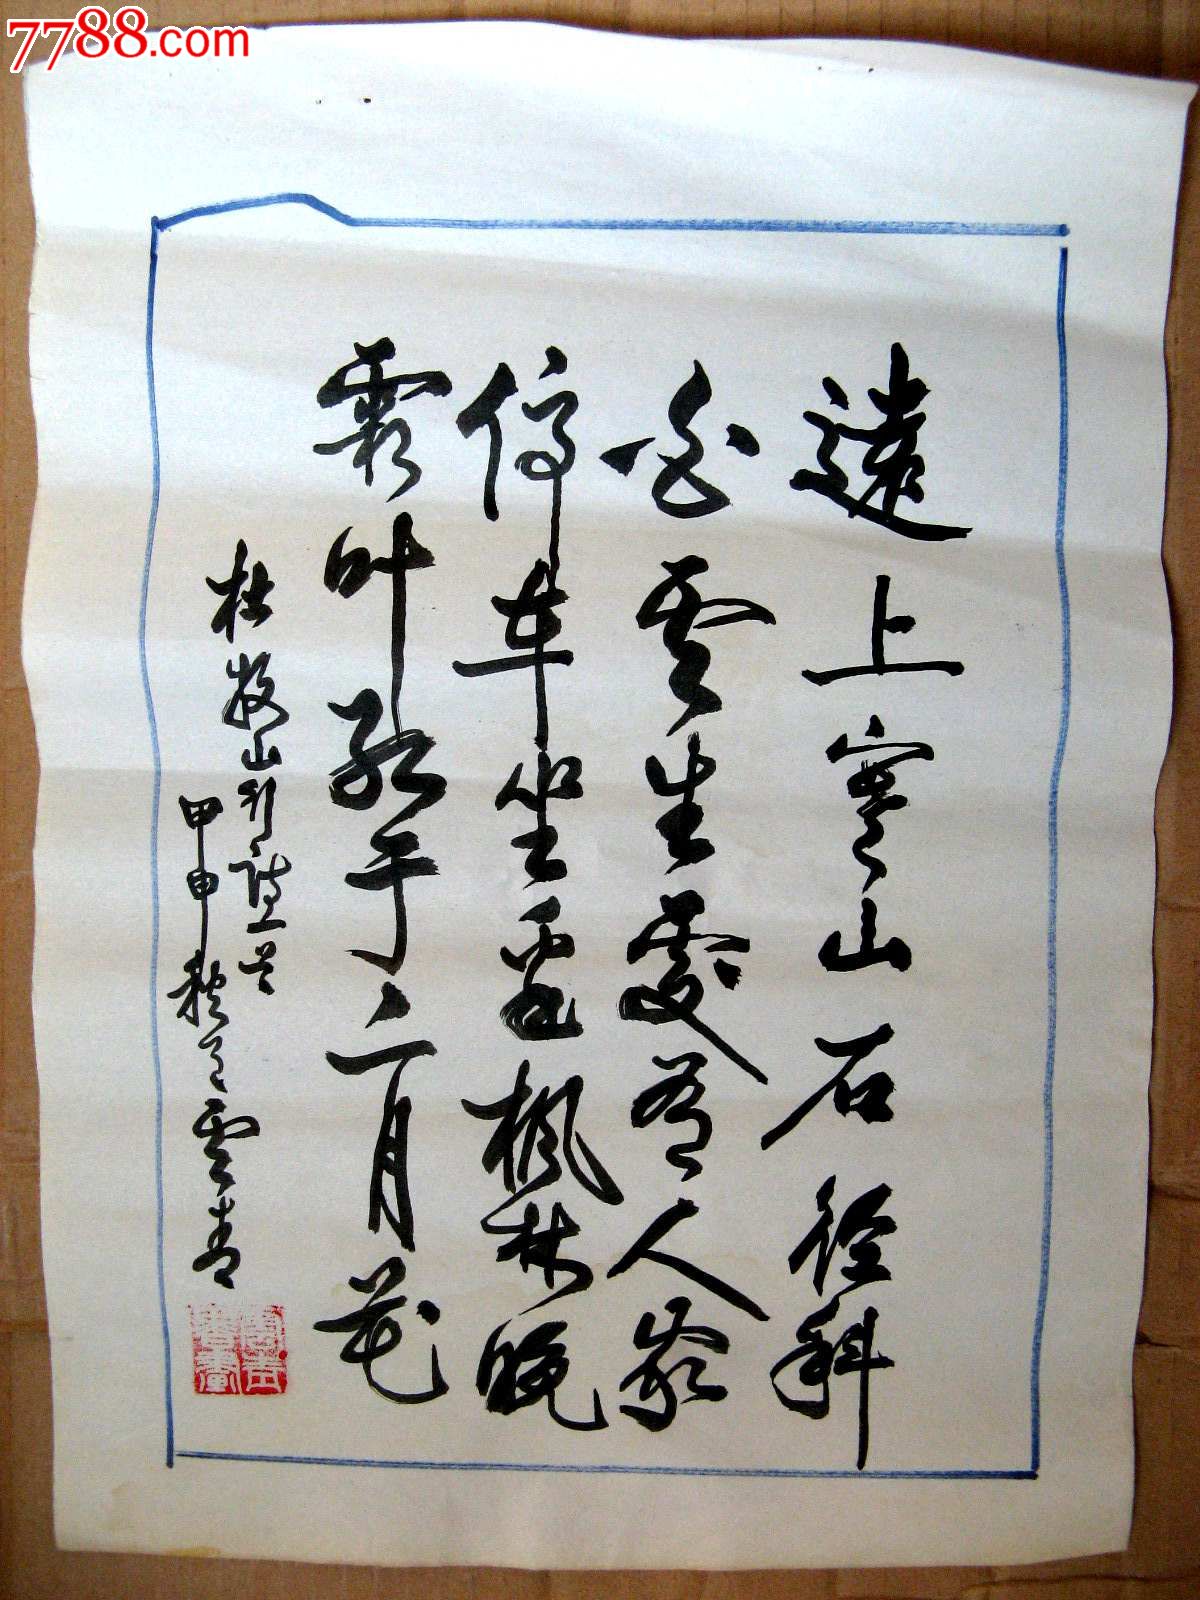 7788.com
遠上寒山石径斜
白雲生處有人家
停车坐愛枫林晚
霜叶红于二月花
杜牧山行詩一首
甲申秋雲青